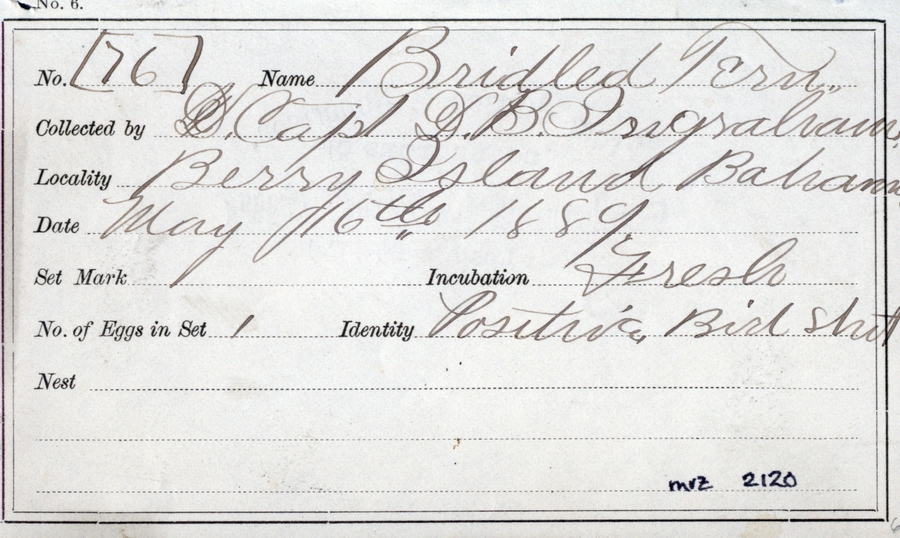 No. 6.
No. [76] Name Bridled Tern.
Collected by D. Capt D. B. Ingraham.
Locality Berry Island Baham
Date May 16th 1889.
Set Mark 1 Incubation Fresh
No. of Eggs in Set 1 Identity Positive, Bird shot
Nest
mrz 2120